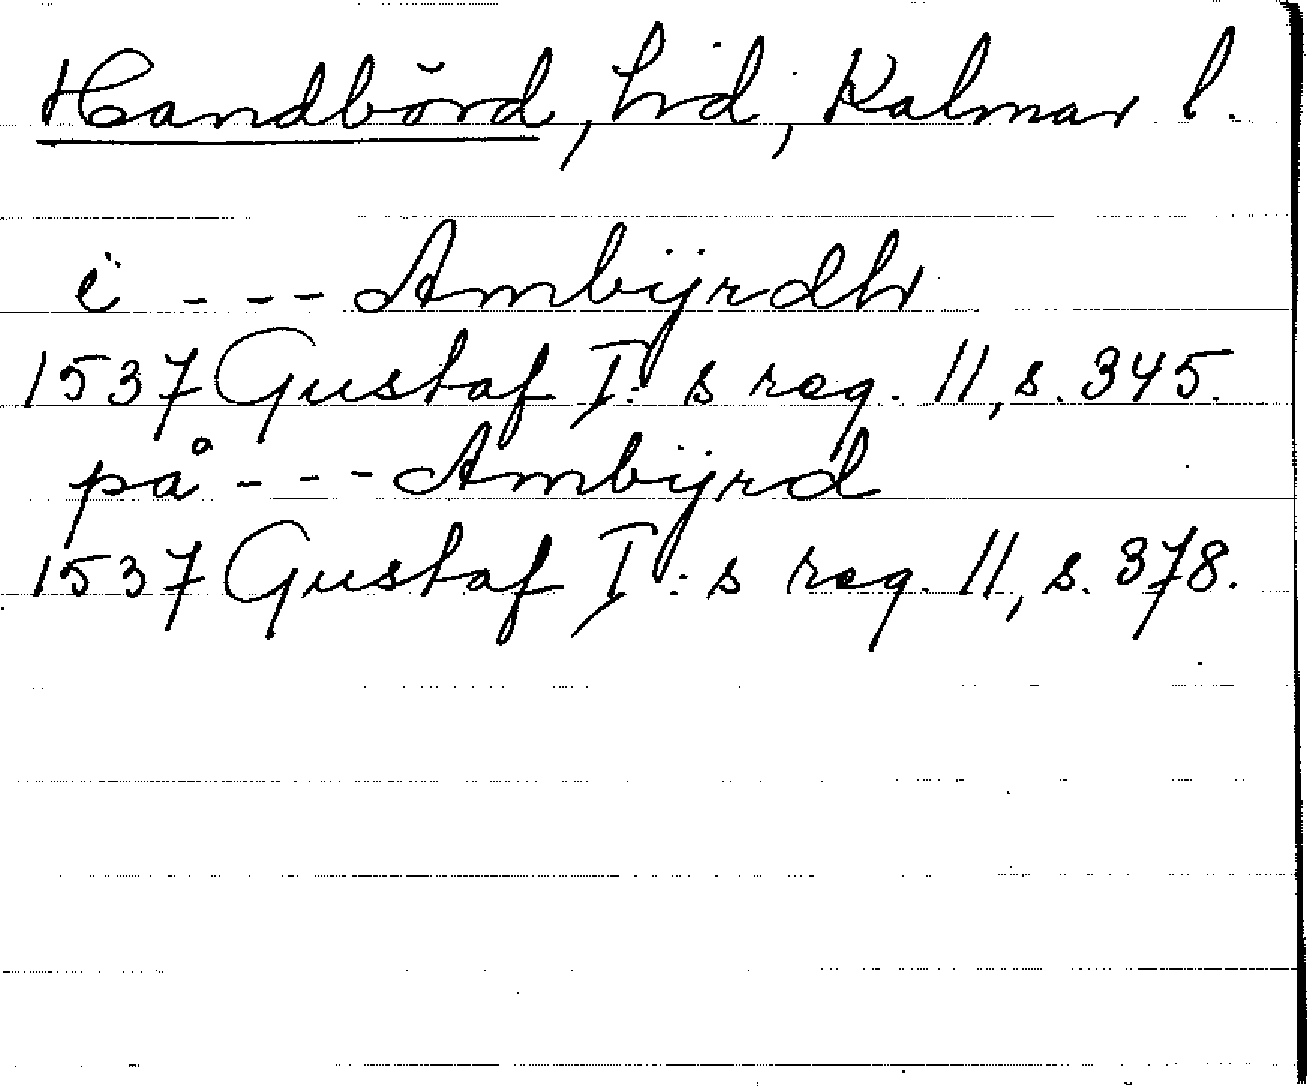 Handbörd, hd, Kalmar l.
i --- Ambÿrdh
1537 Gustaf I:s reg. 11, s. 345.
på --- Ambÿrd
1537 Gustaf I:s reg. 11, s. 378.